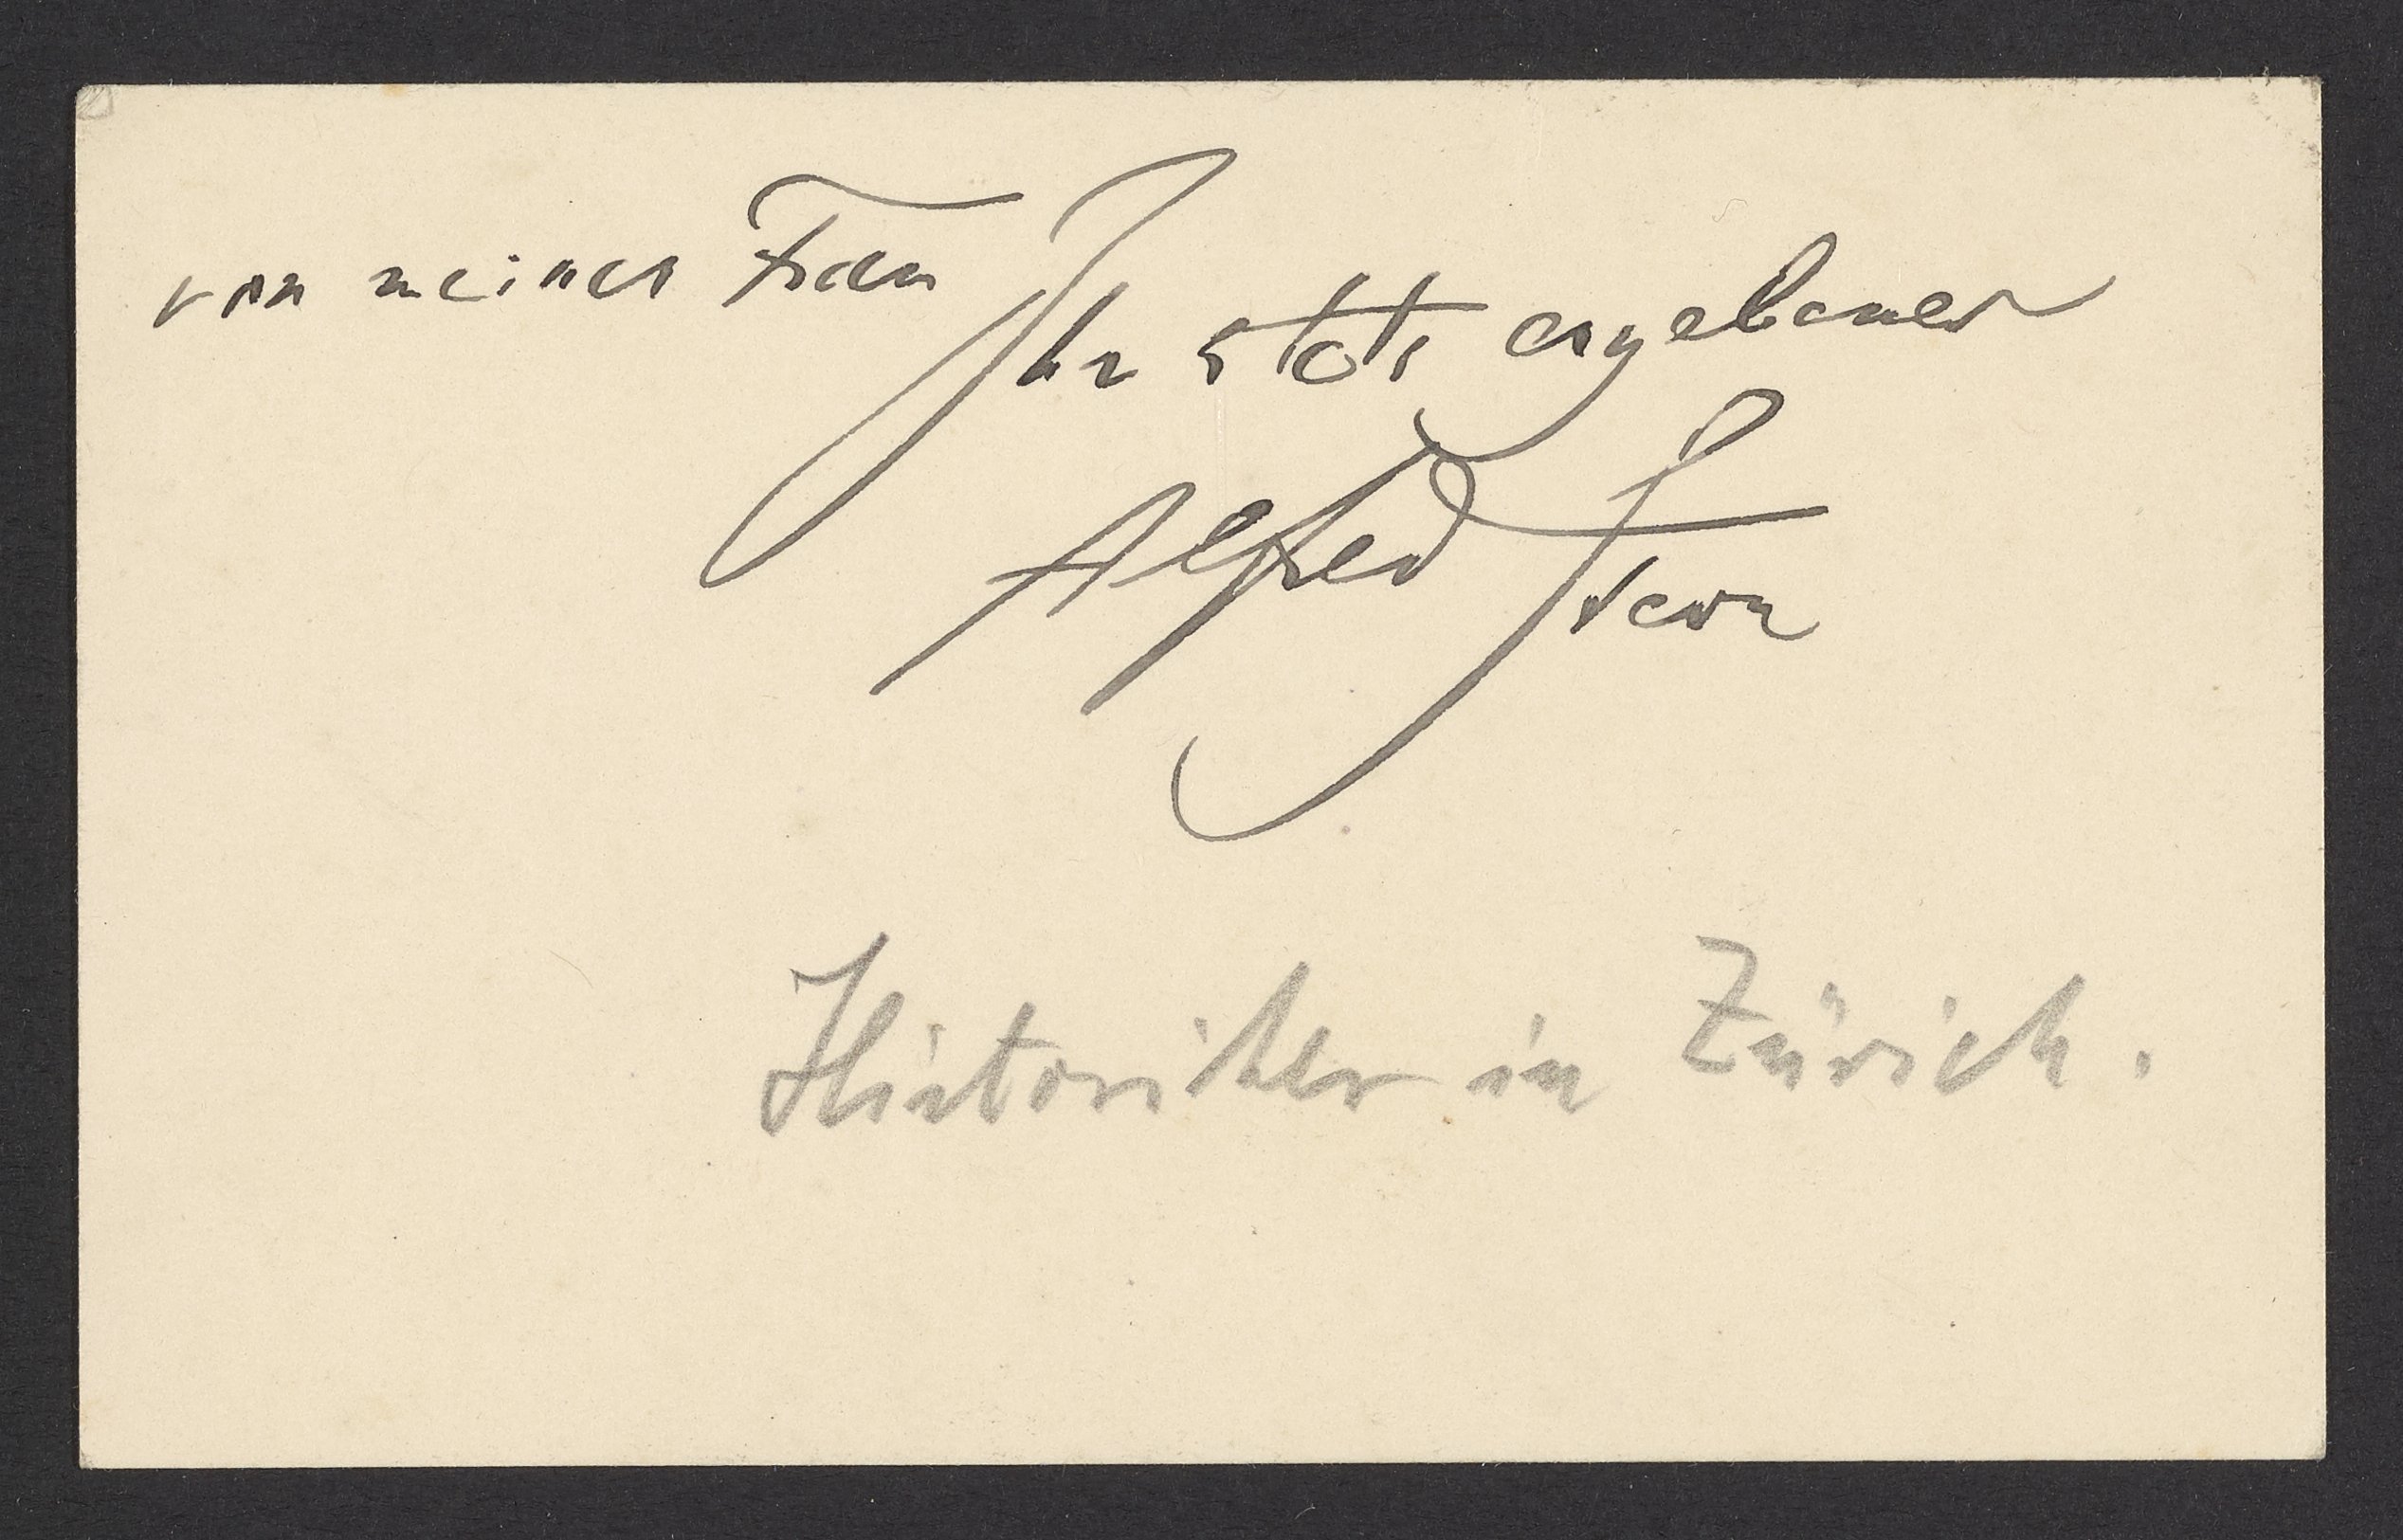 von meiner Frau
Ihr stets ergebener
Alfred Stern
Historiker in Zürich.